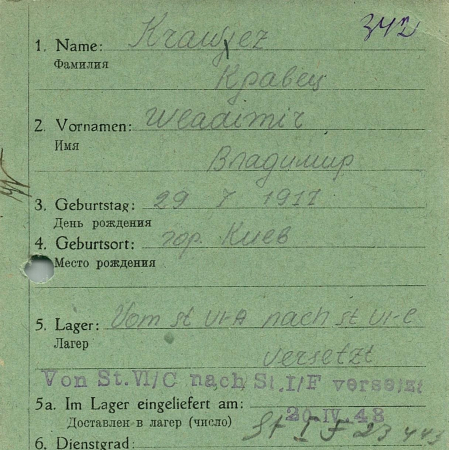 342
1. Name: Krawjez
Фамилия
Кравец
2. Vornamen: Wladimir
Имя
Владимир
3. Geburtstag: 29 7 1917
День рождения
4. Geburtsort: гор. Киев
Место рождения
5. Lager: Vom St VI-A nach St VI-C
Лагер
versetzt
Von St. VI/C nach St. I/F versetzt
5a. Im Lager eingeliefert am: 20 IV. 43
Доставлен в лагер (число) St I F 23443
6. Dienstgrad: